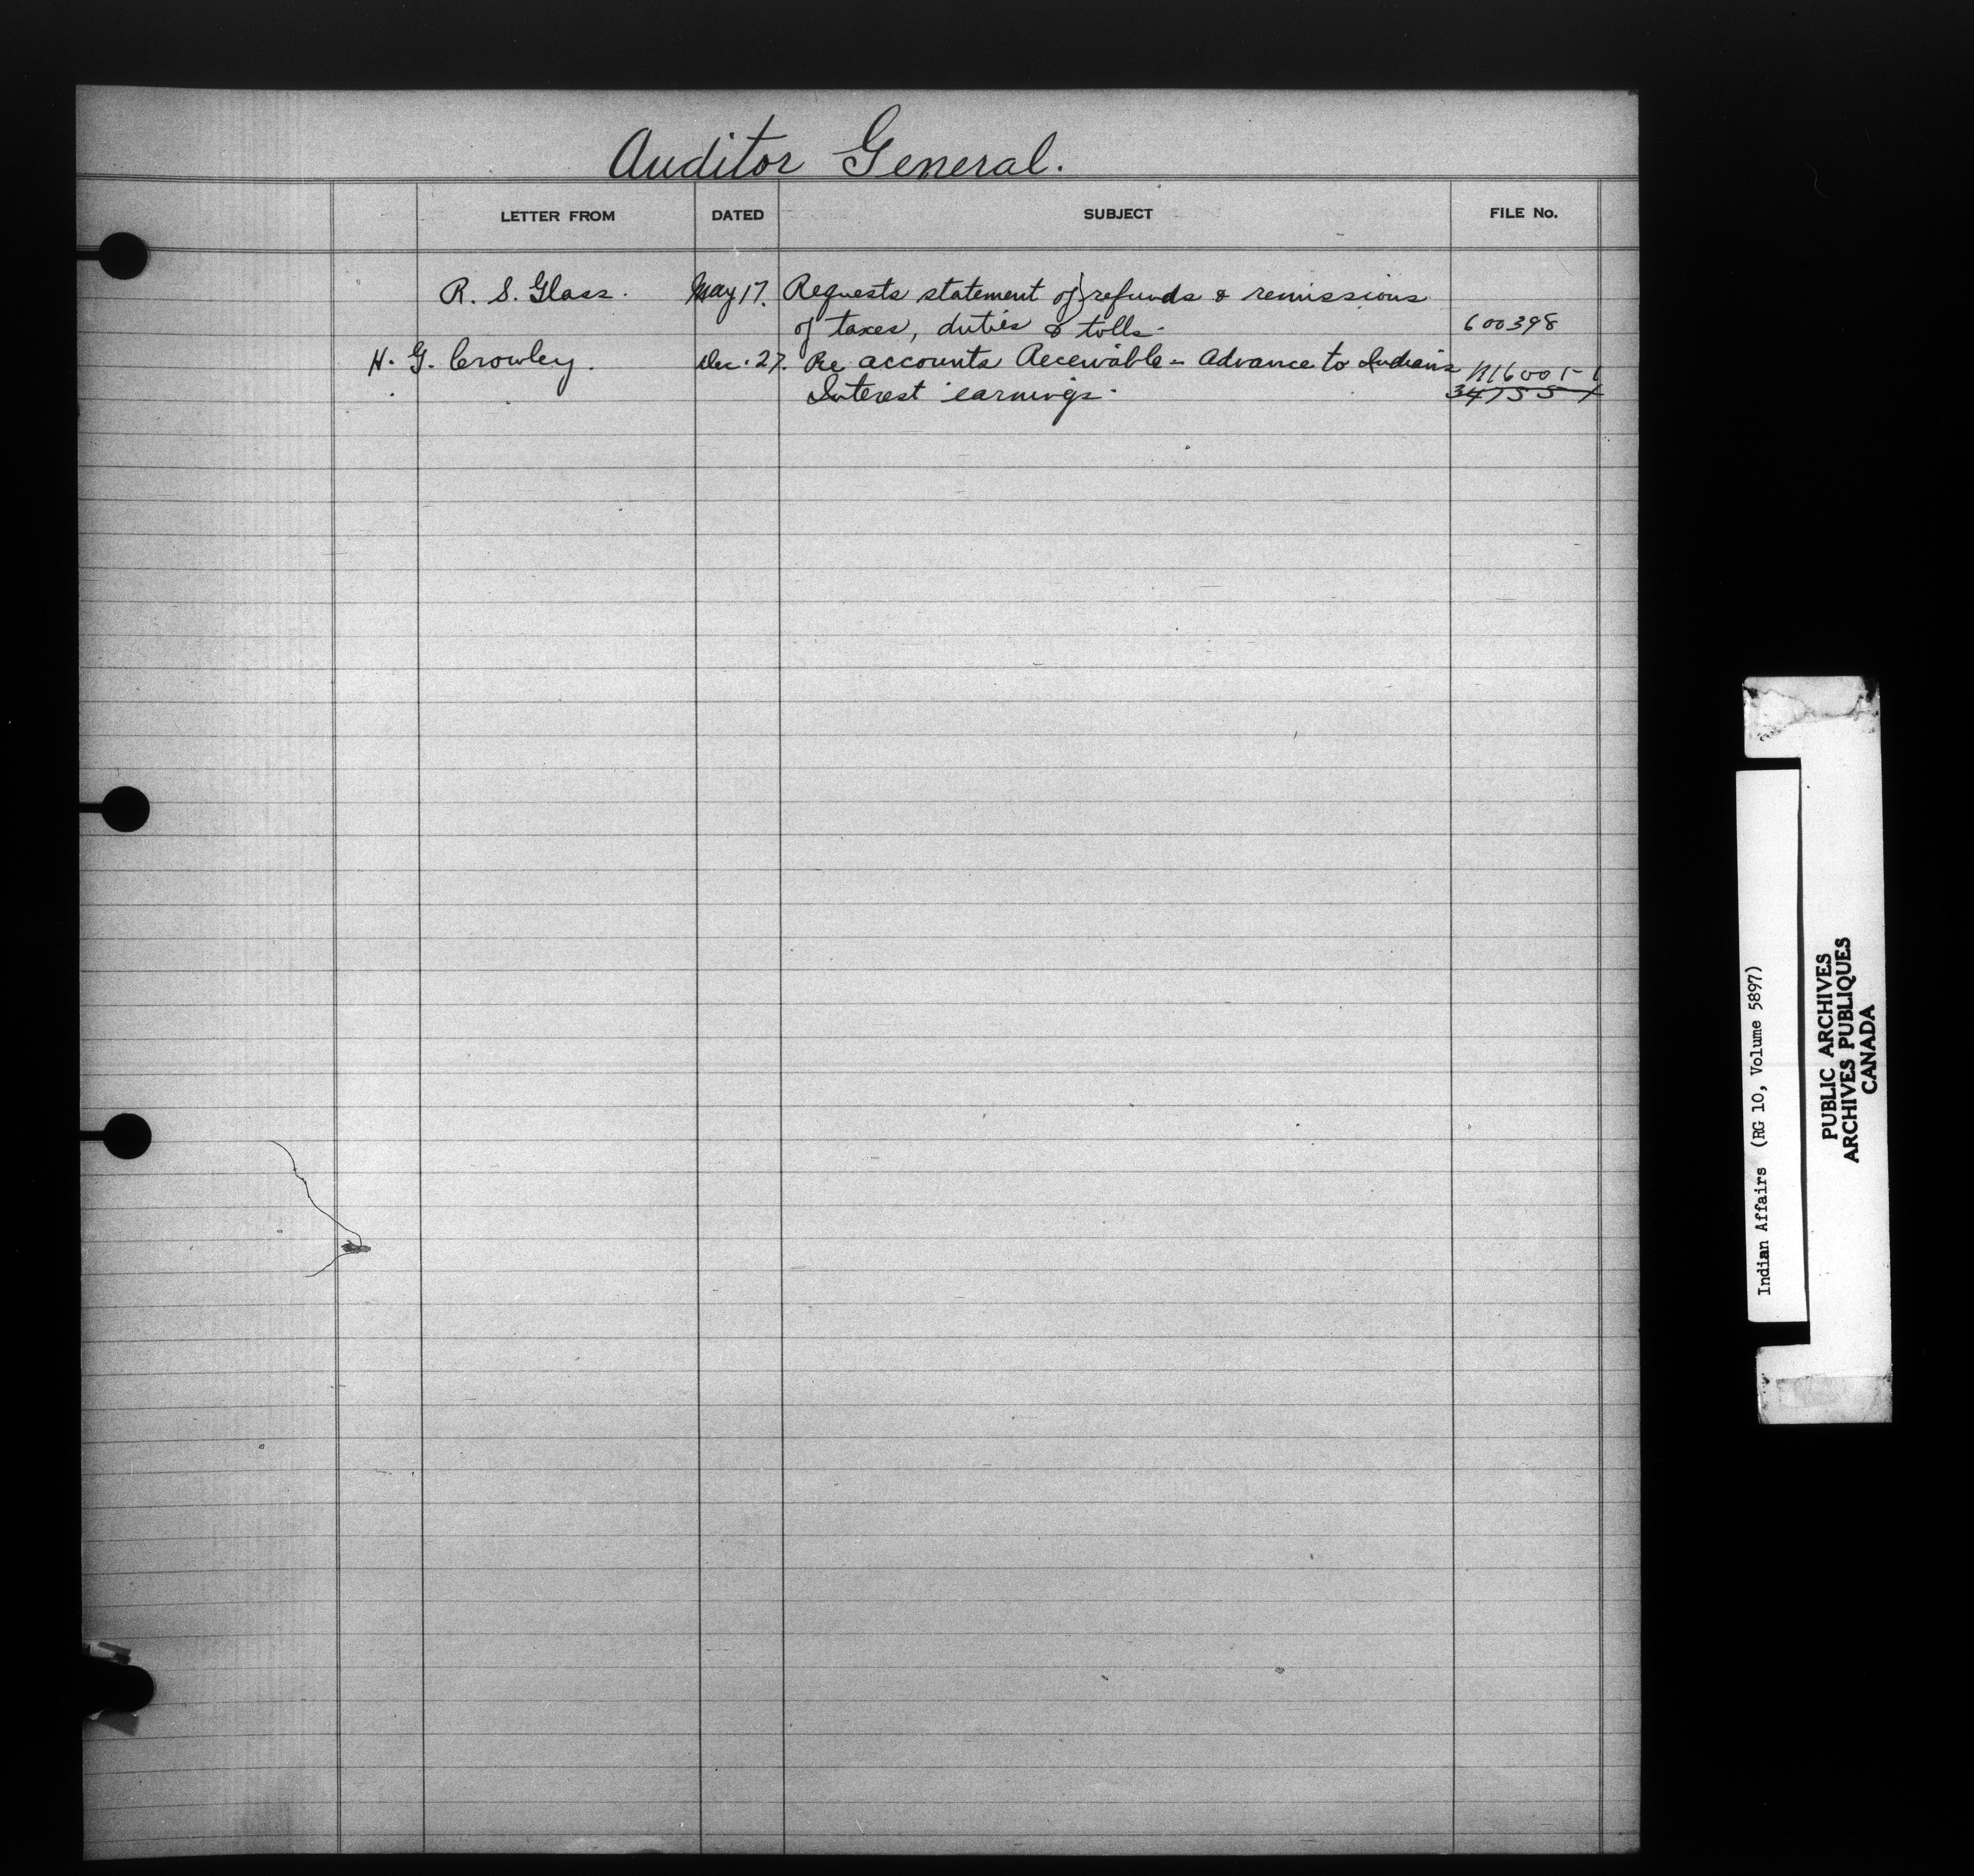 Auditor General.
LETTER FROM DATED SUBJECT FILE No.
R. S. Glass. May 17. Requests statement of refunds & remissions
of taxes, duties & tolls. 600398
H. G. Crowley. Dec. 27. Re accounts Receivable - Advance to Indians
Interest earnings.
Indian Affairs (RG 10, Volume 5897)
PUBLIC ARCHIVES
ARCHIVES PUBLIQUES
CANADA